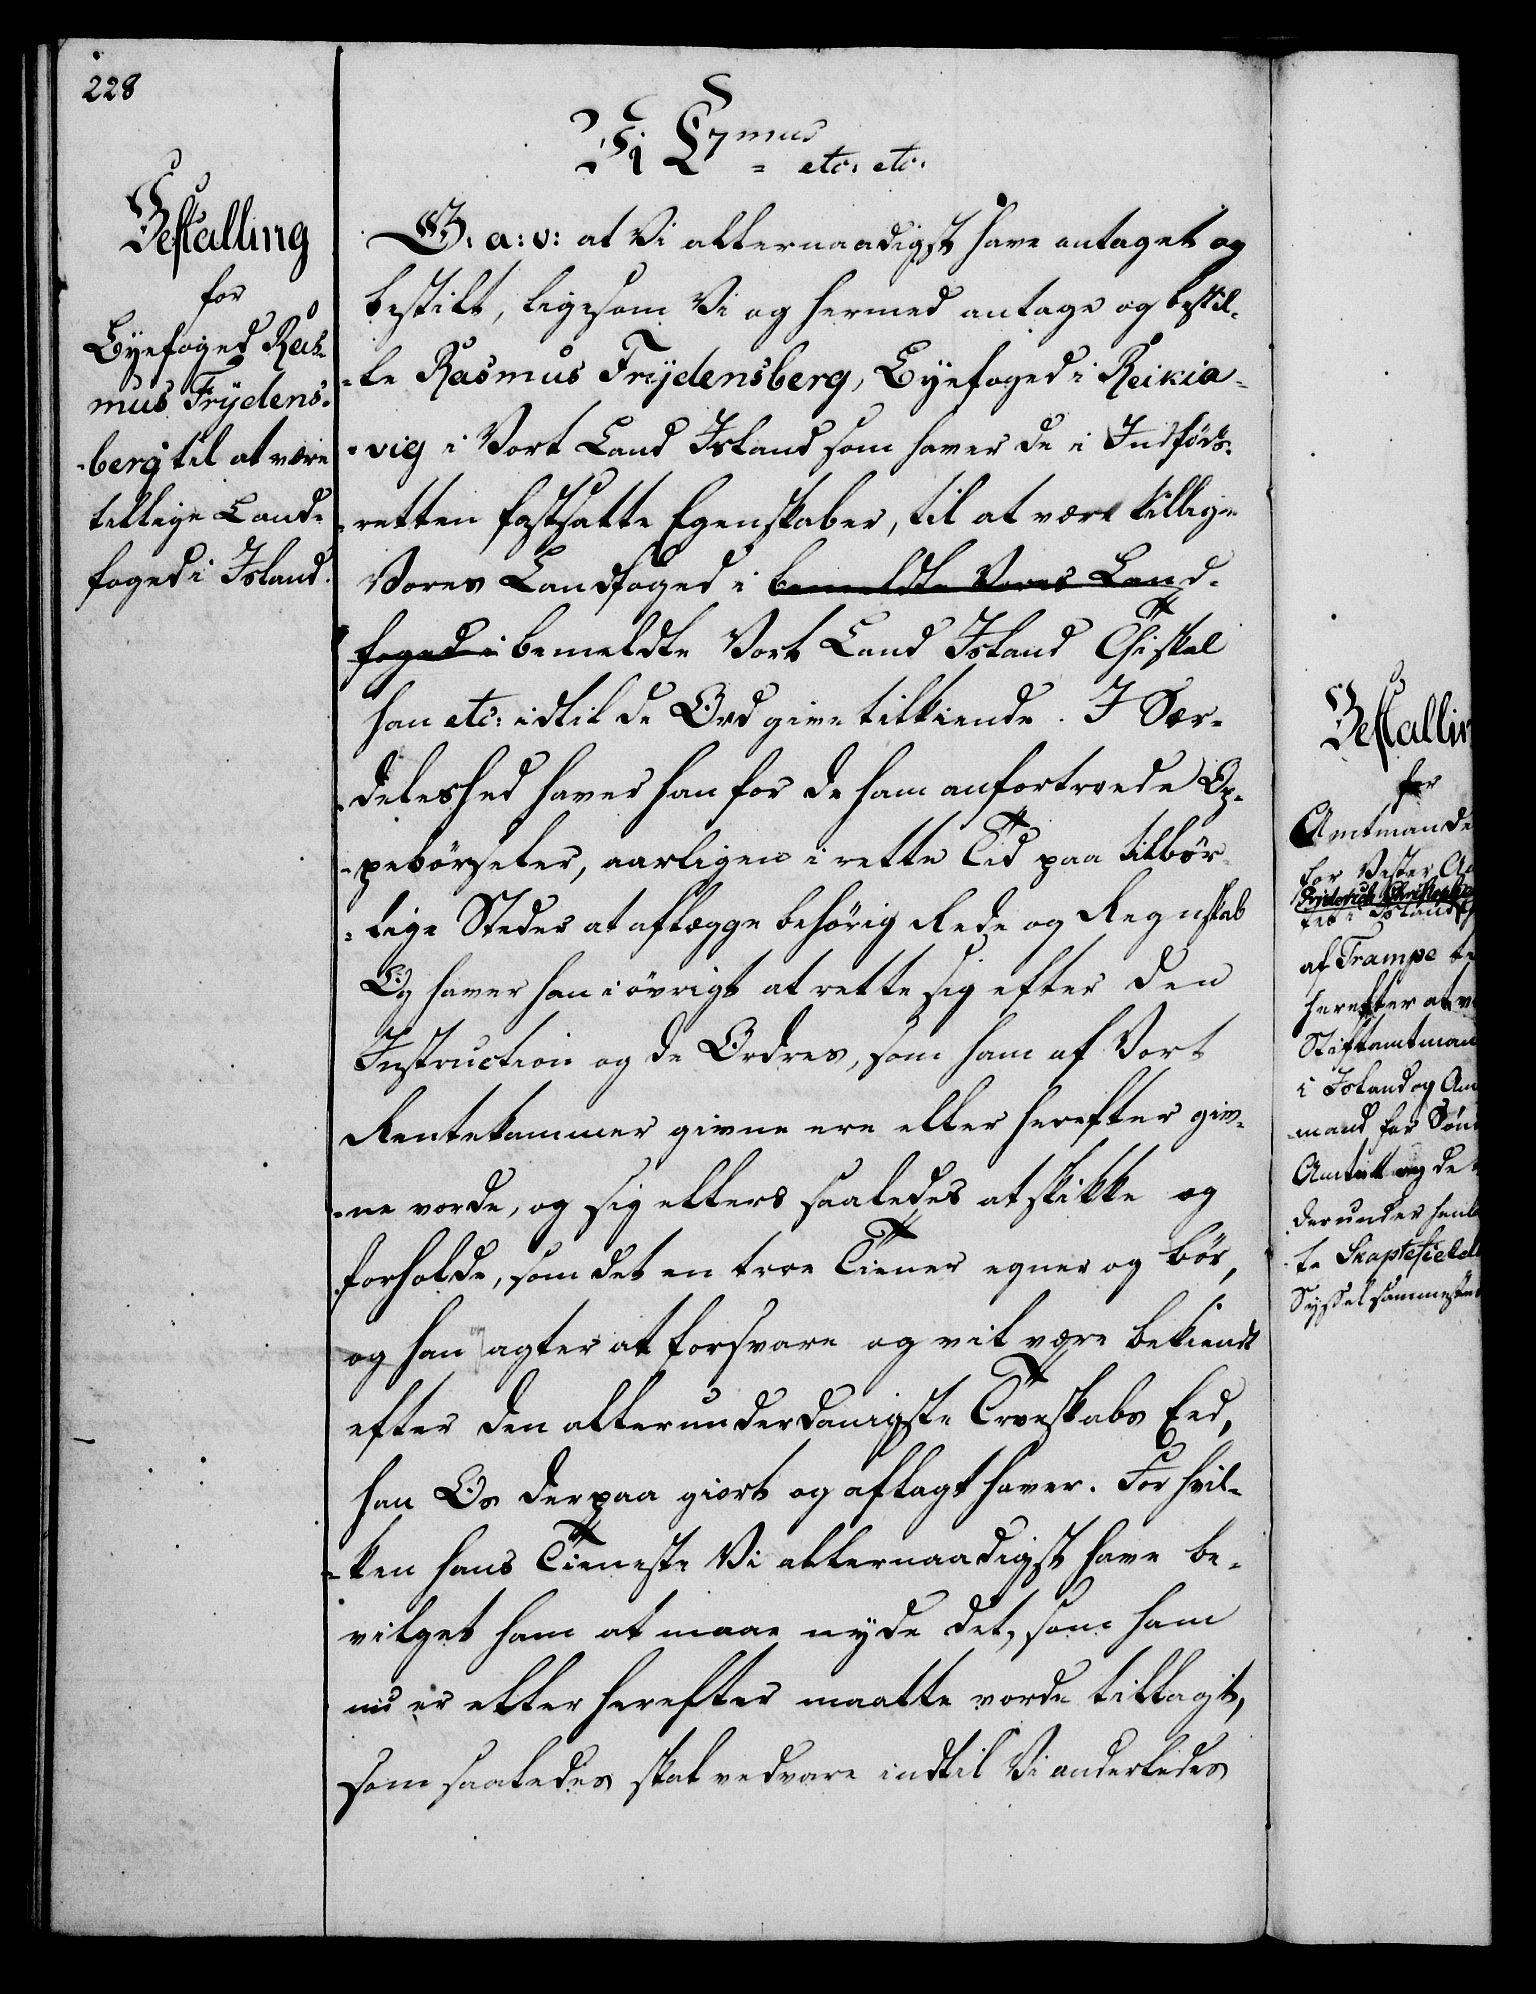 228
Bestalling
for
Byefoged Ras-
mus Frydens-
-berg til at være
tillige Land-
foged i Island.
Vi C 7mus
= etc: etc:
G: a: v: at Vi allernaadigst have antaget og
bestilt, ligesom Vi og hermed antage og bestil-
-le Rasmus Frydensberg, Byefoged i Reikia-
-vig i Vort Land Island som haver de i Indföds-
-retten fastsatte Egenskaber, til at være tillige
Vores Landfoged i bemeldte Vores Land-
foged i bemeldte Vort Land Island Thi skal
han etc: idtil de Ord give tilkiende. I Sær-
-deleshed haver han for de ham anfortroede Op-
-pebörseler, aarligen i rette Tid paa tilbör-
-lige Steder at aflægge behörig Rede og Regnskab
Og haver han i övrigt at rette sig efter den
Instruction og de Ordres, som ham af Vort
Rentekammer givne ere eller herefter giv-
-ne vorde, og sig ellers saaledes at skikke og
forholde, som det en troe Tiener egner og bör,
og han agter at forsvare og vil være bekiendt
efter den allerunderdanigste Troeskabs Eed,
han Os derpaa giort og aflagt haver. For hvil-
-ken hans Tieneste Vi allernaadigst have be-
vilget ham at maae nyde det, som ham
nu er eller herefter maatte vorde tillagt,
som saaledes skal vedvare indtil Vi anderledes
Bestallin
for
Amtmand
for Vester A
Friderich Christophe
tet i Island
af Trampe te
herefter at v
Stiftamtman
i Island og Am
-mand for Sön
Amtet og de
derunder henl
-te Skaptefield
Syssel sammesteds